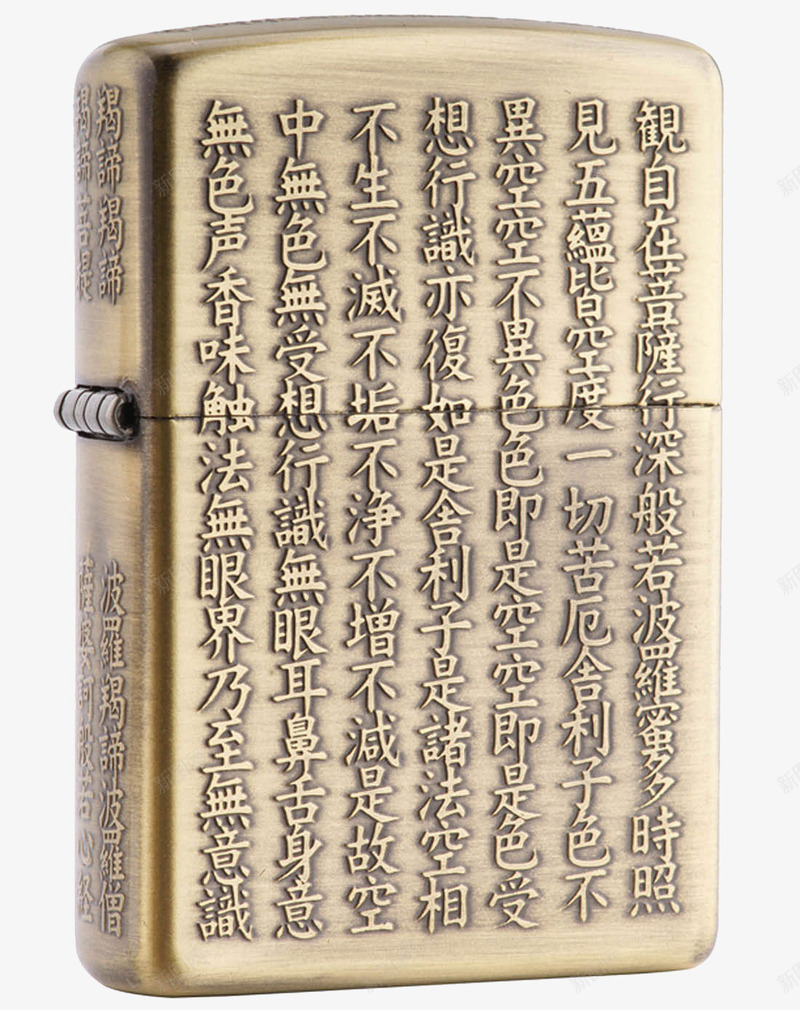 観自在菩薩行深般若波羅蜜多時照
見五蘊皆空度一切苦厄舎利子色不
異空空不異色色即是空空即是色受
想行識亦復如是舎利子是諸法空相
不生不滅不垢不浄不増不減是故空
中無色無受想行識無眼耳鼻舌身意
無色声香味触法無眼界乃至無意識
羯諦羯諦
波羅羯諦波羅僧
羯諦菩提
薩婆訶般若心経